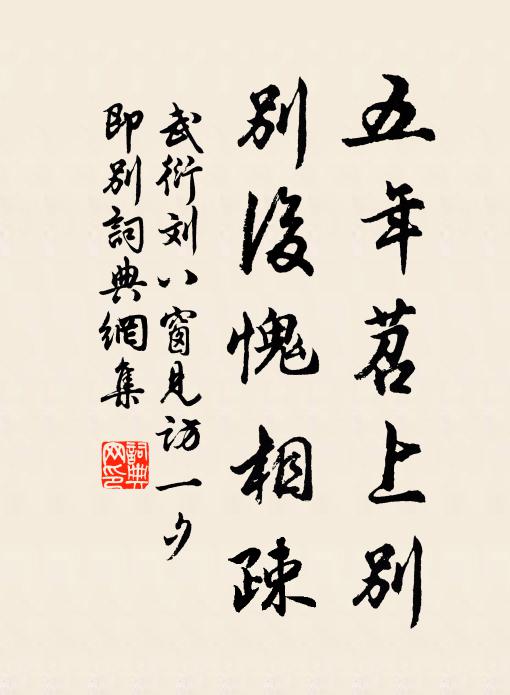 五年苕上别
别後愧相疎
武衍刘八窗見訪一夕
即别詞典網集
詞典网印